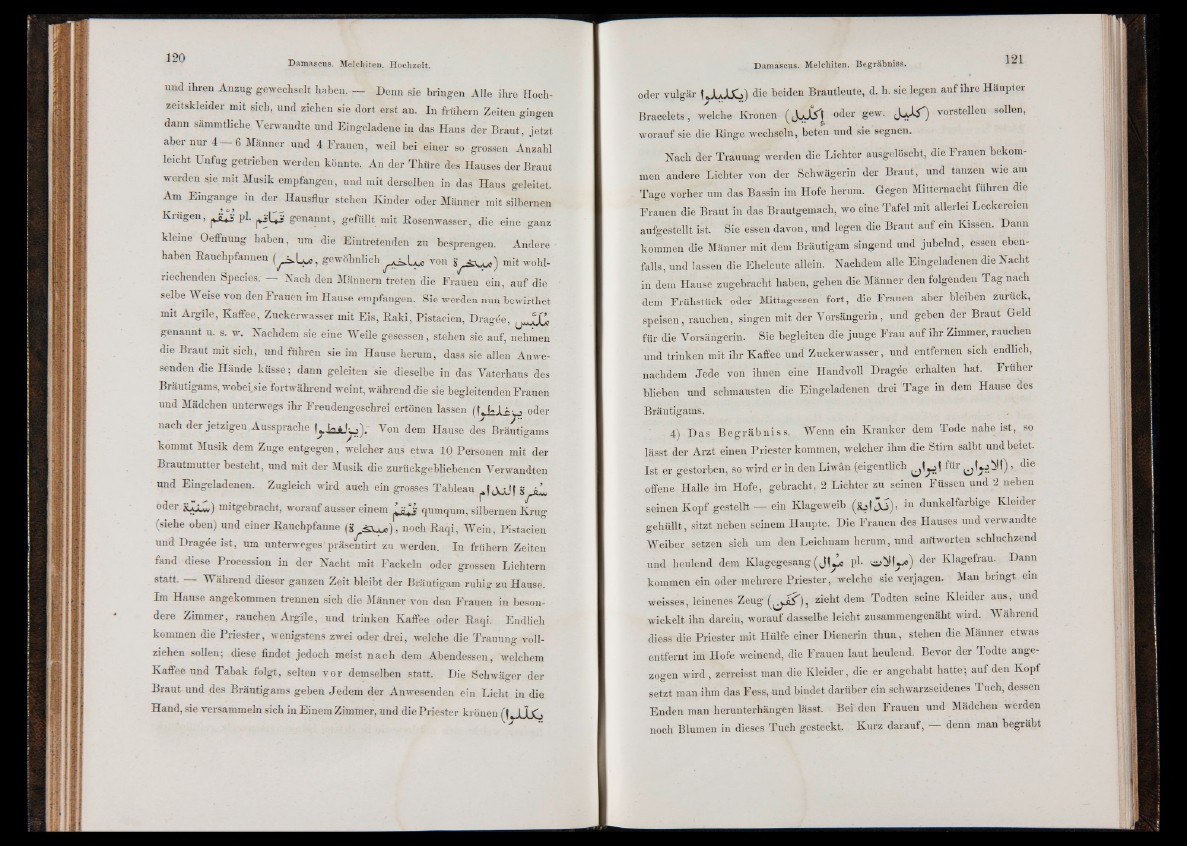 120
Damascus. Melchiten. Hochzeit.
und ihren Anzug gewechselt haben. — Denn sie bringen Alle ihre Hoch-
zeitskleider mit sich, und ziehen sie dort erst an. In frühern Zeiten gingen
dann sämmtliche Verwandte und Eingeladene in das Haus der Braut, jetzt
aber nur 4 — 6 Männer und 4 Frauen, weil bei einer so grossen Anzahl
leicht Unfug getrieben werden könnte. An der Thüre des Hauses der Braut
werden sie mit Musik empfangen, und mit derselben in das Haus geleitet.
Am Eingange in der Hausflur stehen Kinder oder Männer mit silbernen
Krügen, قمقم pl. قماقم genannt, gefüllt mit Rosenwasser, die eine ganz
kleine Oeffnung haben, um die Eintretenden zu besprengen. Andere
haben Rauchpfannen (مباخر, gewöhnlich مباخير von مبخرة) mit wohl-
riechenden Species. — Nach den Männern treten die Frauen ein, auf die
selbe Weise von den Frauen im Hause empfangen. Sie werden nun bewirthet
mit Argîle, Kaffee, Zuckerwasser mit Eis, Raki, Pistacien, Dragée, ملبّس
genannt u. s. w. Nachdem sie eine Weile gesessen, stehen sie auf, nehmen
die Braut mit sich, und führen sie im Hause herum, dass sie allen Anwe-
senden die Hände küsse; dann geleiten sie dieselbe in das Vaterhaus des
Bräutigams, wobei sie fortwährend weint, während die sie begleitenden Frauen
und Mädchen unterwegs ihr Freudengeschrei ertönen lassen (يزغلطوا oder
nach der jetzigen Aussprache يزلغطوا). Von dem Hause des Bräutigams
kommt Musik dem Zuge entgegen, welcher aus etwa 10 Personen mit der
Brautmutter besteht, und mit der Musik die zurückgebliebenen Verwandten
und Eingeladenen. Zugleich wird auch ein grosses Tableau
oder mitgebracht, worauf ausser einem قمقم qumqum, silbernen Krug
(siehe oben) und einer Rauchpfanne (مبخرة), noch Raqi, Wein, Pistacien
und Dragée ist, um unterweges präsentirt zu werden. In frühern Zeiten
fand diese Procession in der Nacht mit Fackeln oder grossen Lichtern
statt. — Während dieser ganzen Zeit bleibt der Bräutigam ruhig zu Hause.
Im Hause angekommen trennen sich die Männer von den Frauen in beson-
dere Zimmer, rauchen Argîle, und trinken Kaffee oder Raqi. Endlich
kommen die Priester, wenigstens zwei oder drei, welche die Trauung voll-
ziehen sollen; diese findet jedoch meist nach dem Abendessen, welchem
Kaffee und Tabak folgt, selten vor demselben statt. Die Schwäger der
Braut und des Bräutigams geben Jedem der Anwesenden ein Licht in die
Hand, sie versammeln sich in Einem Zimmer, und die Priester krönen (يكلّلوا
Damascus. Melchiten. Begräbniss.
121
oder vulgär يكليلوا) die beiden Brautleute, d. h. sie legen auf ihre Häupter
Bracelets, welche Kronen (اكليل oder gew. كليل) vorstellen sollen,
worauf sie die Ringe wechseln, beten und sie segnen.
Nach der Trauung werden die Lichter ausgelöscht, die Frauen bekom-
men andere Lichter von der Schwägerin der Braut, und tanzen wie am
Tage vorher um das Bassin im Hofe herum. Gegen Mitternacht führen die
Frauen die Braut in das Brautgemach, wo eine Tafel mit allerlei Leckereien
aufgestellt ist. Sie essen davon, und legen die Braut auf ein Kissen. Dann
kommen die Männer mit dem Bräutigam singend und jubelnd, essen eben-
falls, und lassen die Eheleute allein. Nachdem alle Eingeladenen die Nacht
in dem Hause zugebracht haben, gehen die Männer den folgenden Tag nach
dem Frühstück oder Mittagessen fort, die Frauen aber bleiben zurück,
speisen, rauchen, singen mit der Vorsängerin, und geben der Braut Geld
für die Vorsängerin. Sie begleiten die junge Frau auf ihr Zimmer, rauchen
und trinken mit ihr Kaffee und Zuckerwasser, und entfernen sich endlich,
nachdem Jede von ihnen eine Handvoll Dragée erhalten hat. Früher
blieben und schmausten die Eingeladenen drei Tage in dem Hause des
Bräutigams.
4) Das Begräbniss. Wenn ein Kranker dem Tode nahe ist, so
lässt der Arzt einen Priester kommen, welcher ihm die Stirn salbt und betet.
Ist er gestorben, so wird er in den Liwân (eigentlich ايوان für الايوان), die
offene Halle im Hofe, gebracht, 2 Lichter zu seinen Füssen und 2 neben
seinen Kopf gestellt — ein Klageweib (ندّابة), in dunkelfarbige Kleider
gehüllt, sitzt neben seinem Haupte. Die Frauen des Hauses und verwandte
Weiber setzen sich um den Leichnam herum, und antworten schluchzend
und heulend dem Klagegesang (موال pl. موالات) der Klagefrau. Dann
kommen ein oder mehrere Priester, welche sie verjagen. Man bringt ein
weisses, leinenes Zeug (كفن), zieht dem Todten seine Kleider aus, und
wickelt ihn darein, worauf dasselbe leicht zusammengenäht wird. Während
diess die Priester mit Hülfe einer Dienerin thun, stehen die Männer etwas
entfernt im Hofe weinend, die Frauen laut heulend. Bevor der Todte ange-
zogen wird, zerreisst man die Kleider, die er angehabt hatte; auf den Kopf
setzt man ihm das Fess, und bindet darüber ein schwarzseidenes Tuch, dessen
Enden man herunterhängen lässt. Bei den Frauen und Mädchen werden
noch Blumen in dieses Tuch gesteckt. Kurz darauf, — denn man begräbt